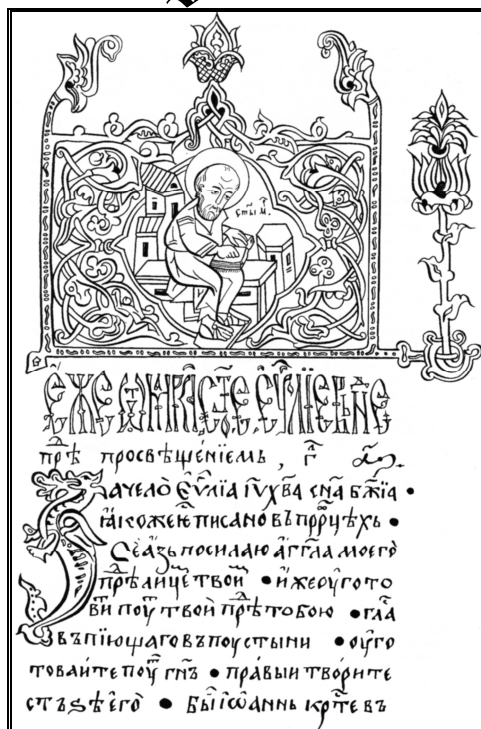 с҃ты М҃.
Е҆́же ѿ Ма́рка ст҃ое Еѵⷢ҇лїе в нⷣе
прⷣѣ просвѣще́нїемь , г҃ а҃.
Зачело Е҆ѵⷢ҇лїа і҆ѵ҃хв҃а сн҃а бж҃їа •
ꙗ҆коже е҆ писано въ прⷪ҇рцѣхь •
Се азь посилаю а҆гг҃ла моего
прѣⷣ лице твоиⷨ • и҆же ѹ҆гото
ви поуⷮ твоӣ прѣⷣ тобою • гла
въпїющаго въ поустыни • оу҆го
товаите поуⷮ гн҃ь • пра́выи творите
стъѕѣ е҆го̀ • бы̑ і҆ѡ҆аннь крⷭ҇те въ